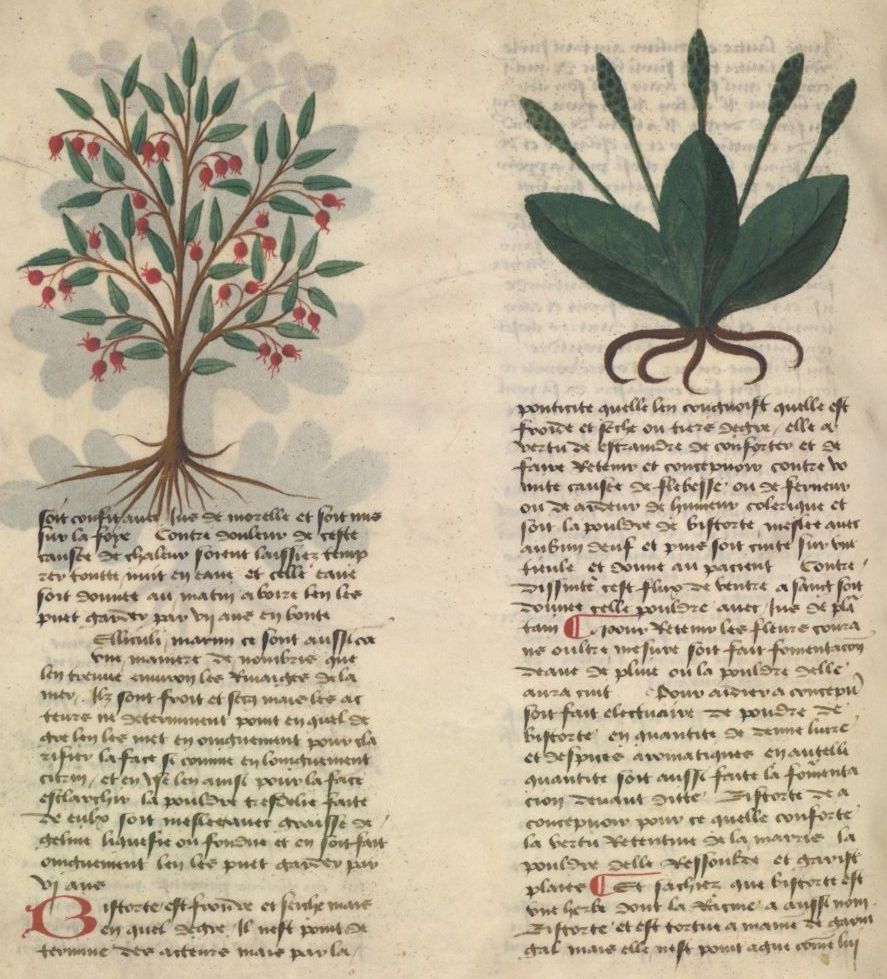 soit confit avec Jus de morelle et soit mis
sur la foye Contre douleur de teste
causee de chaleur soient laissiez temp
rer toutte nuit en eaue et celle eaue
soit donnee au matin a boire len les
puet garder par vii ans en bonte
Elliculi marini ce sont aussi co
vne maniere de nombris que
len treuue enuiron les Riuaiges de la
mer. Ilz sont froit et secz mais les ac
teurs ne determinent point en quel de
gre len les met en oinguement pour cla
rifier la face si comme en longuement
citrin, et en vse len ainsi pour la face
esclarchir la pouldre tresdelie faitte
de eulx soit meslee avec graisse de
geline liquefie ou fondue et en soit fait
oinguement len les puet garder par
vi ans
Bistorte est froide et seiche mais
en quel degre Il nest point de
termine des acteurs mais par la
ponticite quelle len congnoist quelle est
froide et seche ou tiers degre, elle a
vertu de estraindre de conforter et de
faire Retenir et concepuoir contre vo
mite causee de flebesse ou de ferueur
ou de ardeur de humeur colerique et
soit la pouldre de bistorte meslee auec
aubun deuf et puis soit cuite sur vne
tieule et donne au pacient Contre
dissinte cest flux de ventre a sanc soit
donnee celle pouldre auec Jus de pla
tain Pour Retenir les fleurs coura
ns oultre mesure soit fait fomentacon
deaue de pluie ou la pouldre delle
aura cuit Pour aidier a concepu
soit fait electuaire de poudre de
bistorte en quantite de demie liure
et despices aromatiques en autelle
quantite soit aussi faite la fomenta
cion deuant ditte Bistorte de a
concepuoir pour ce quelle conforte
la vertu Retentiue de la marris la
pouldre delle Ressoulde et garist
plaies Et sachiez que bistorte est
vne herbe dont la Racine a aussi nom
Bistorte et est tortue a maniere de garin
gal mais elle nest point ague come lui